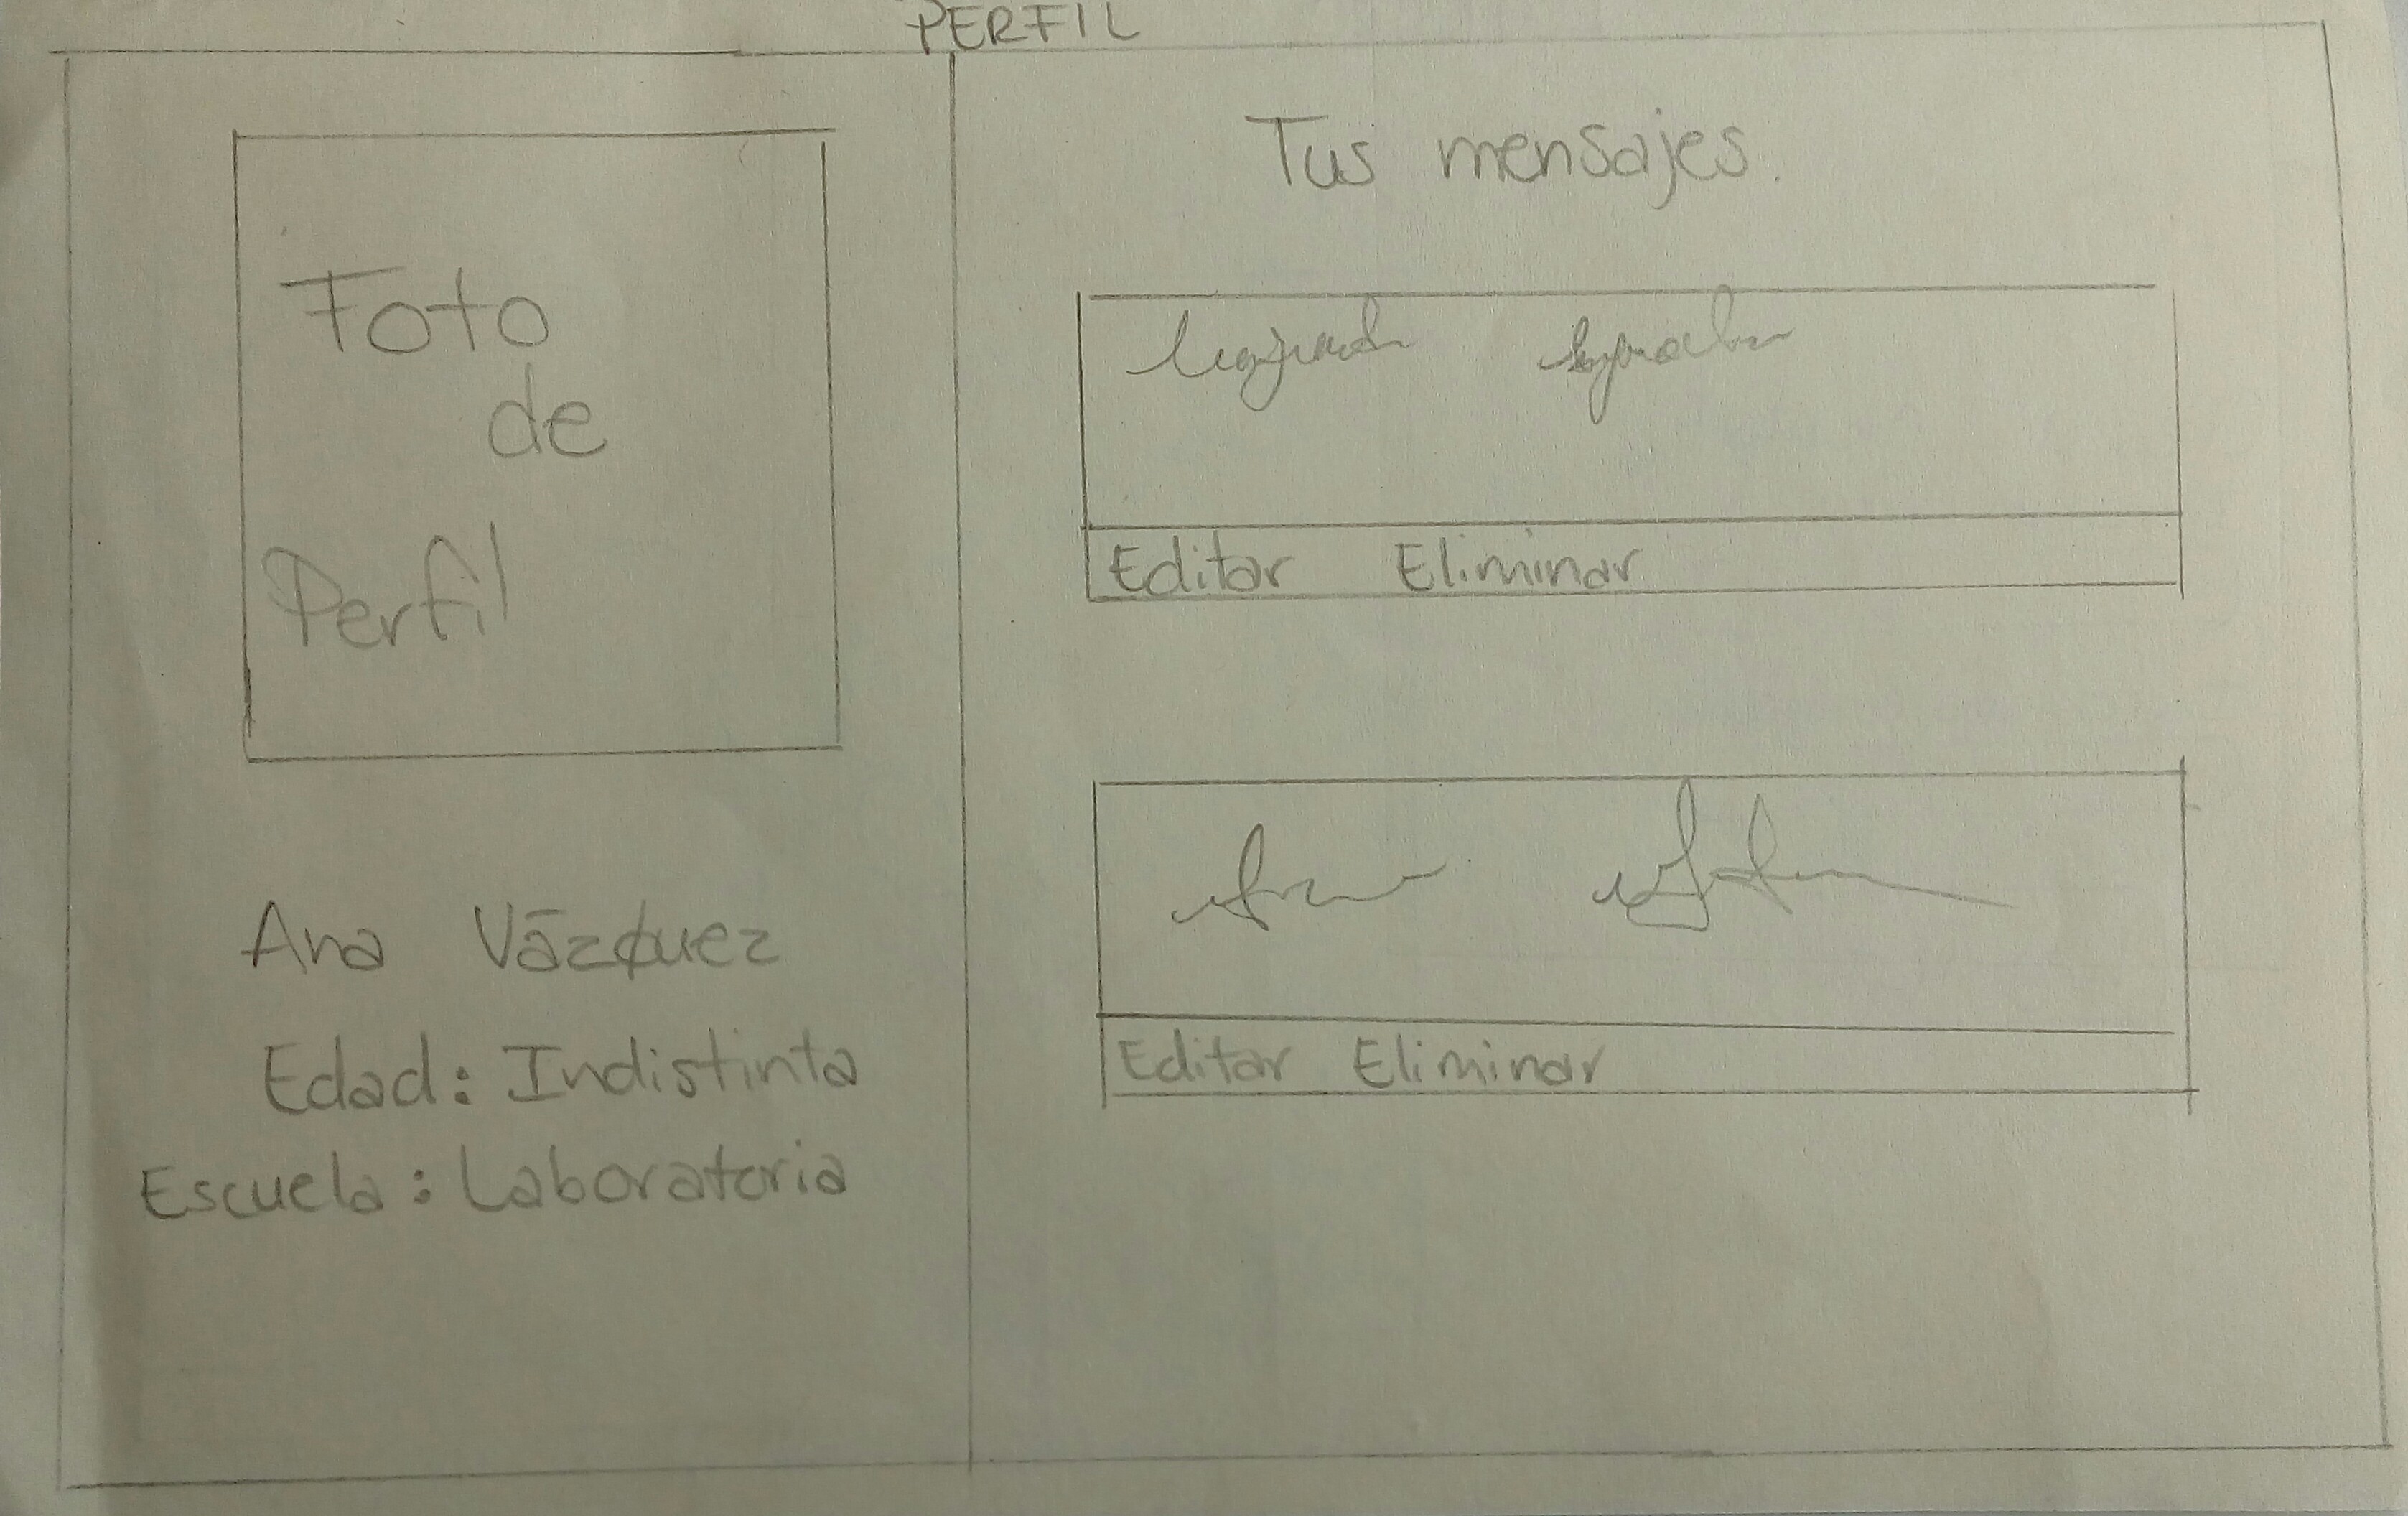 PERFIL
Foto
de
Perfil
Ana Vázquez
Edad: Indistinta
Escuela: Laboratoria
Tus mensajes.
Editar Eliminar
Editar Eliminar